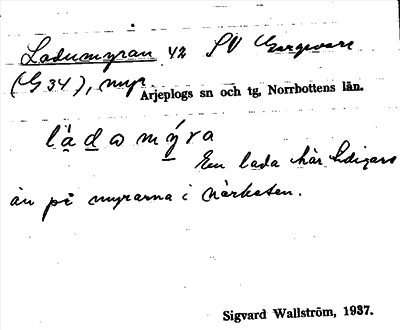 Ladumyran 42 SV
(G 34), myr.
Arjeplogs sn och tg, Norrbottens län.
làdomýra
En lada här tidigare
än på myrarna i närheten.
Sigvard Wallström, 1937.